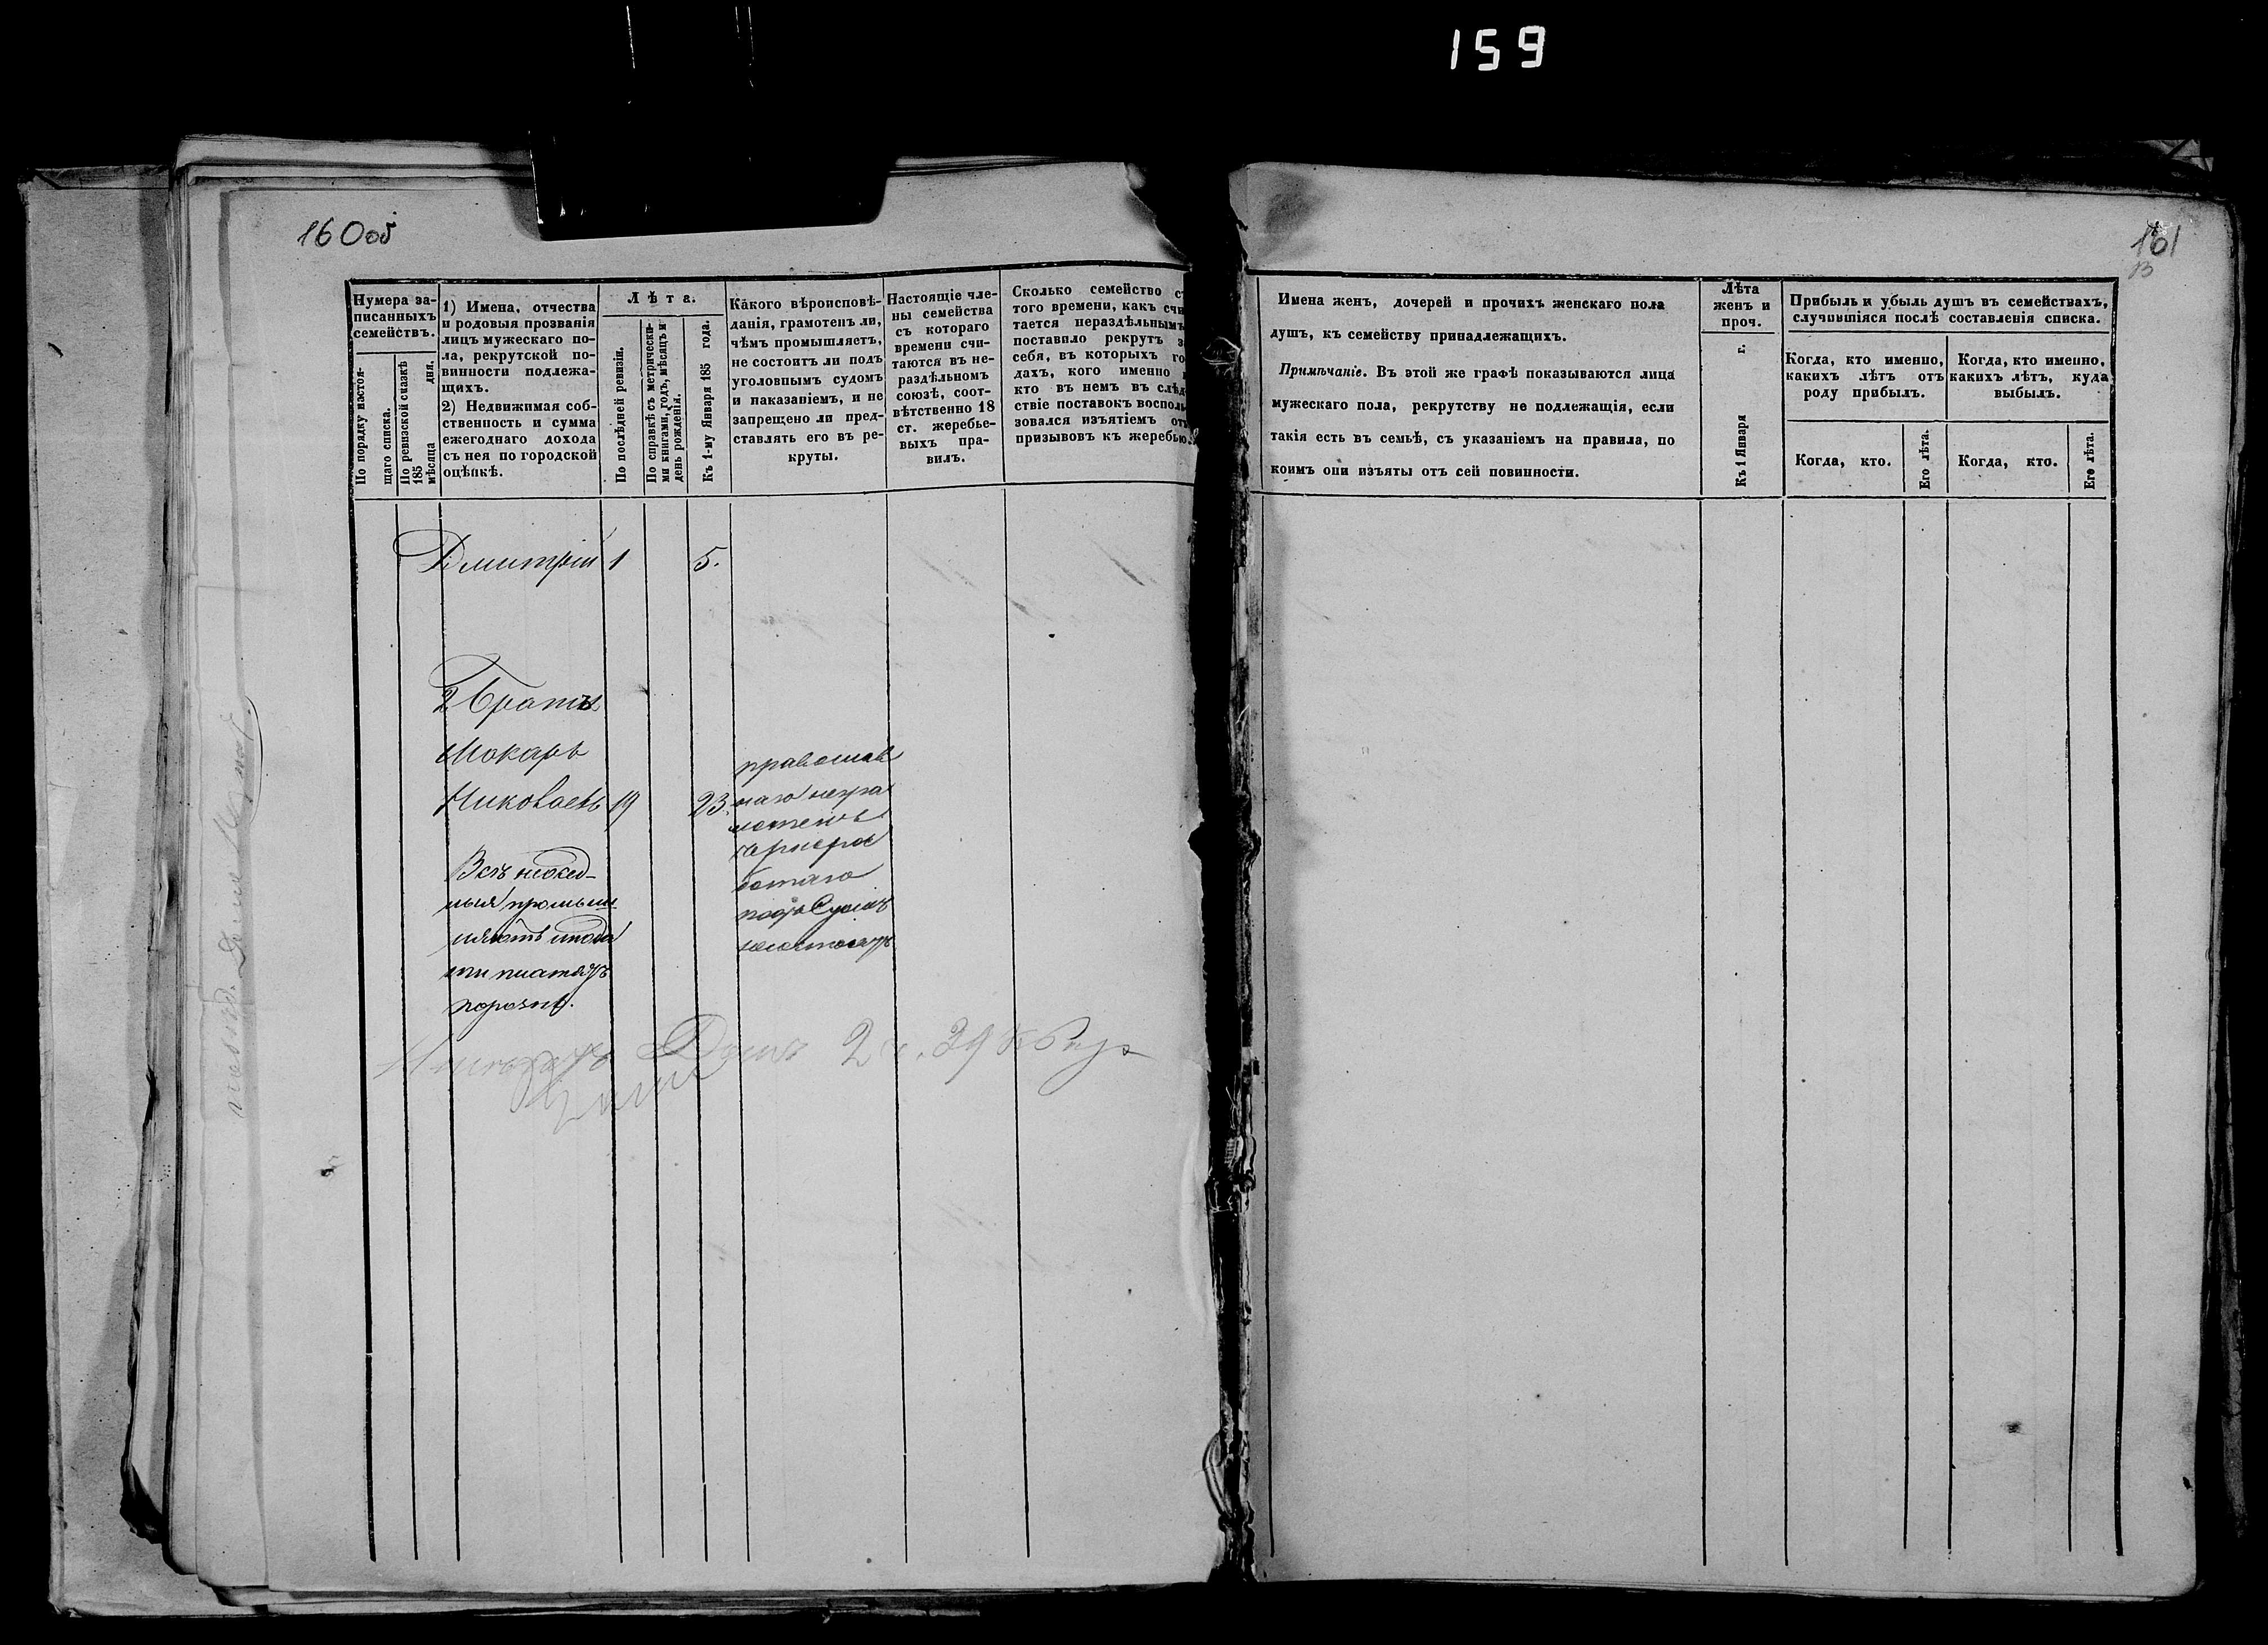 159
160об
161
Нумера за-
писанныхъ
семействъ.
По порядку настоя-
щаго списка.
По ревизской сказкѣ
185
мѣсяца дня.
1) Имена, отчества
и родовыя прозванія
лицъ мужескаго по-
ла, рекрутской по-
винности подлежа-
щихъ.
2) Недвижимая соб-
ственность и сумма
ежегоднаго дохода
съ нея по городской
оцѣнкѣ.
Лѣта.
По послѣдней ревизіи.
По справкѣ съ метрически-
ми книгами, годъ, мѣсяцъ и
день рожденія.
Къ 1-му Января 185 года.
Какого вѣроисповѣ-
данія, грамотенъ ли,
чѣмъ промышляетъ,
не состоитъ ли подъ
уголовнымъ судомъ
и наказаніемъ, и не
запрещено ли пред-
ставлять его въ ре-
круты.
Настоящіе чле-
ны семейства
съ котораго
времени счи-
таются въ не-
раздѣльномъ
союзѣ, соот-
вѣтственно 18
ст. жеребье-
выхъ пра-
вилъ.
Сколько семейство с
того времени, какъ счи
тается нераздѣльнымъ
поставило рекрутъ з
себя, въ которыхъ го
дахъ, кого именно и
кто въ немъ въ слѣд
ствіе поставокъ восполь
зовался изъятіемъ от
призывовъ къ жеребью.
Имена женъ, дочерей и прочихъ женскаго пола
душъ, къ семейству принадлежащихъ.
Примѣчаніе. Въ этой же графѣ показываются лица
мужескаго пола, рекрутству не подлежащія, если
такія есть въ семьѣ, съ указаніемъ на правила, по
коимъ они изъяты отъ сей повинности.
Лѣта
женъ и
проч.
Къ 1 Января г.
Прибыль и убыль душъ въ семействахъ,
случившіяся послѣ составленія списка.
Когда, кто именно,
какихъ лѣтъ отъ
роду прибылъ.
Когда, кто именно,
какихъ лѣтъ, куда
выбылъ.
Когда, кто.
Его лѣта.
Когда, кто.
Его лѣта.
Дмитрій 1 5.
2 Братъ
Макаръ
Николаевъ 19 23.
православ
наго негра
мотенъ
чернора
ботаго
подъ Судомъ
несостоитъ